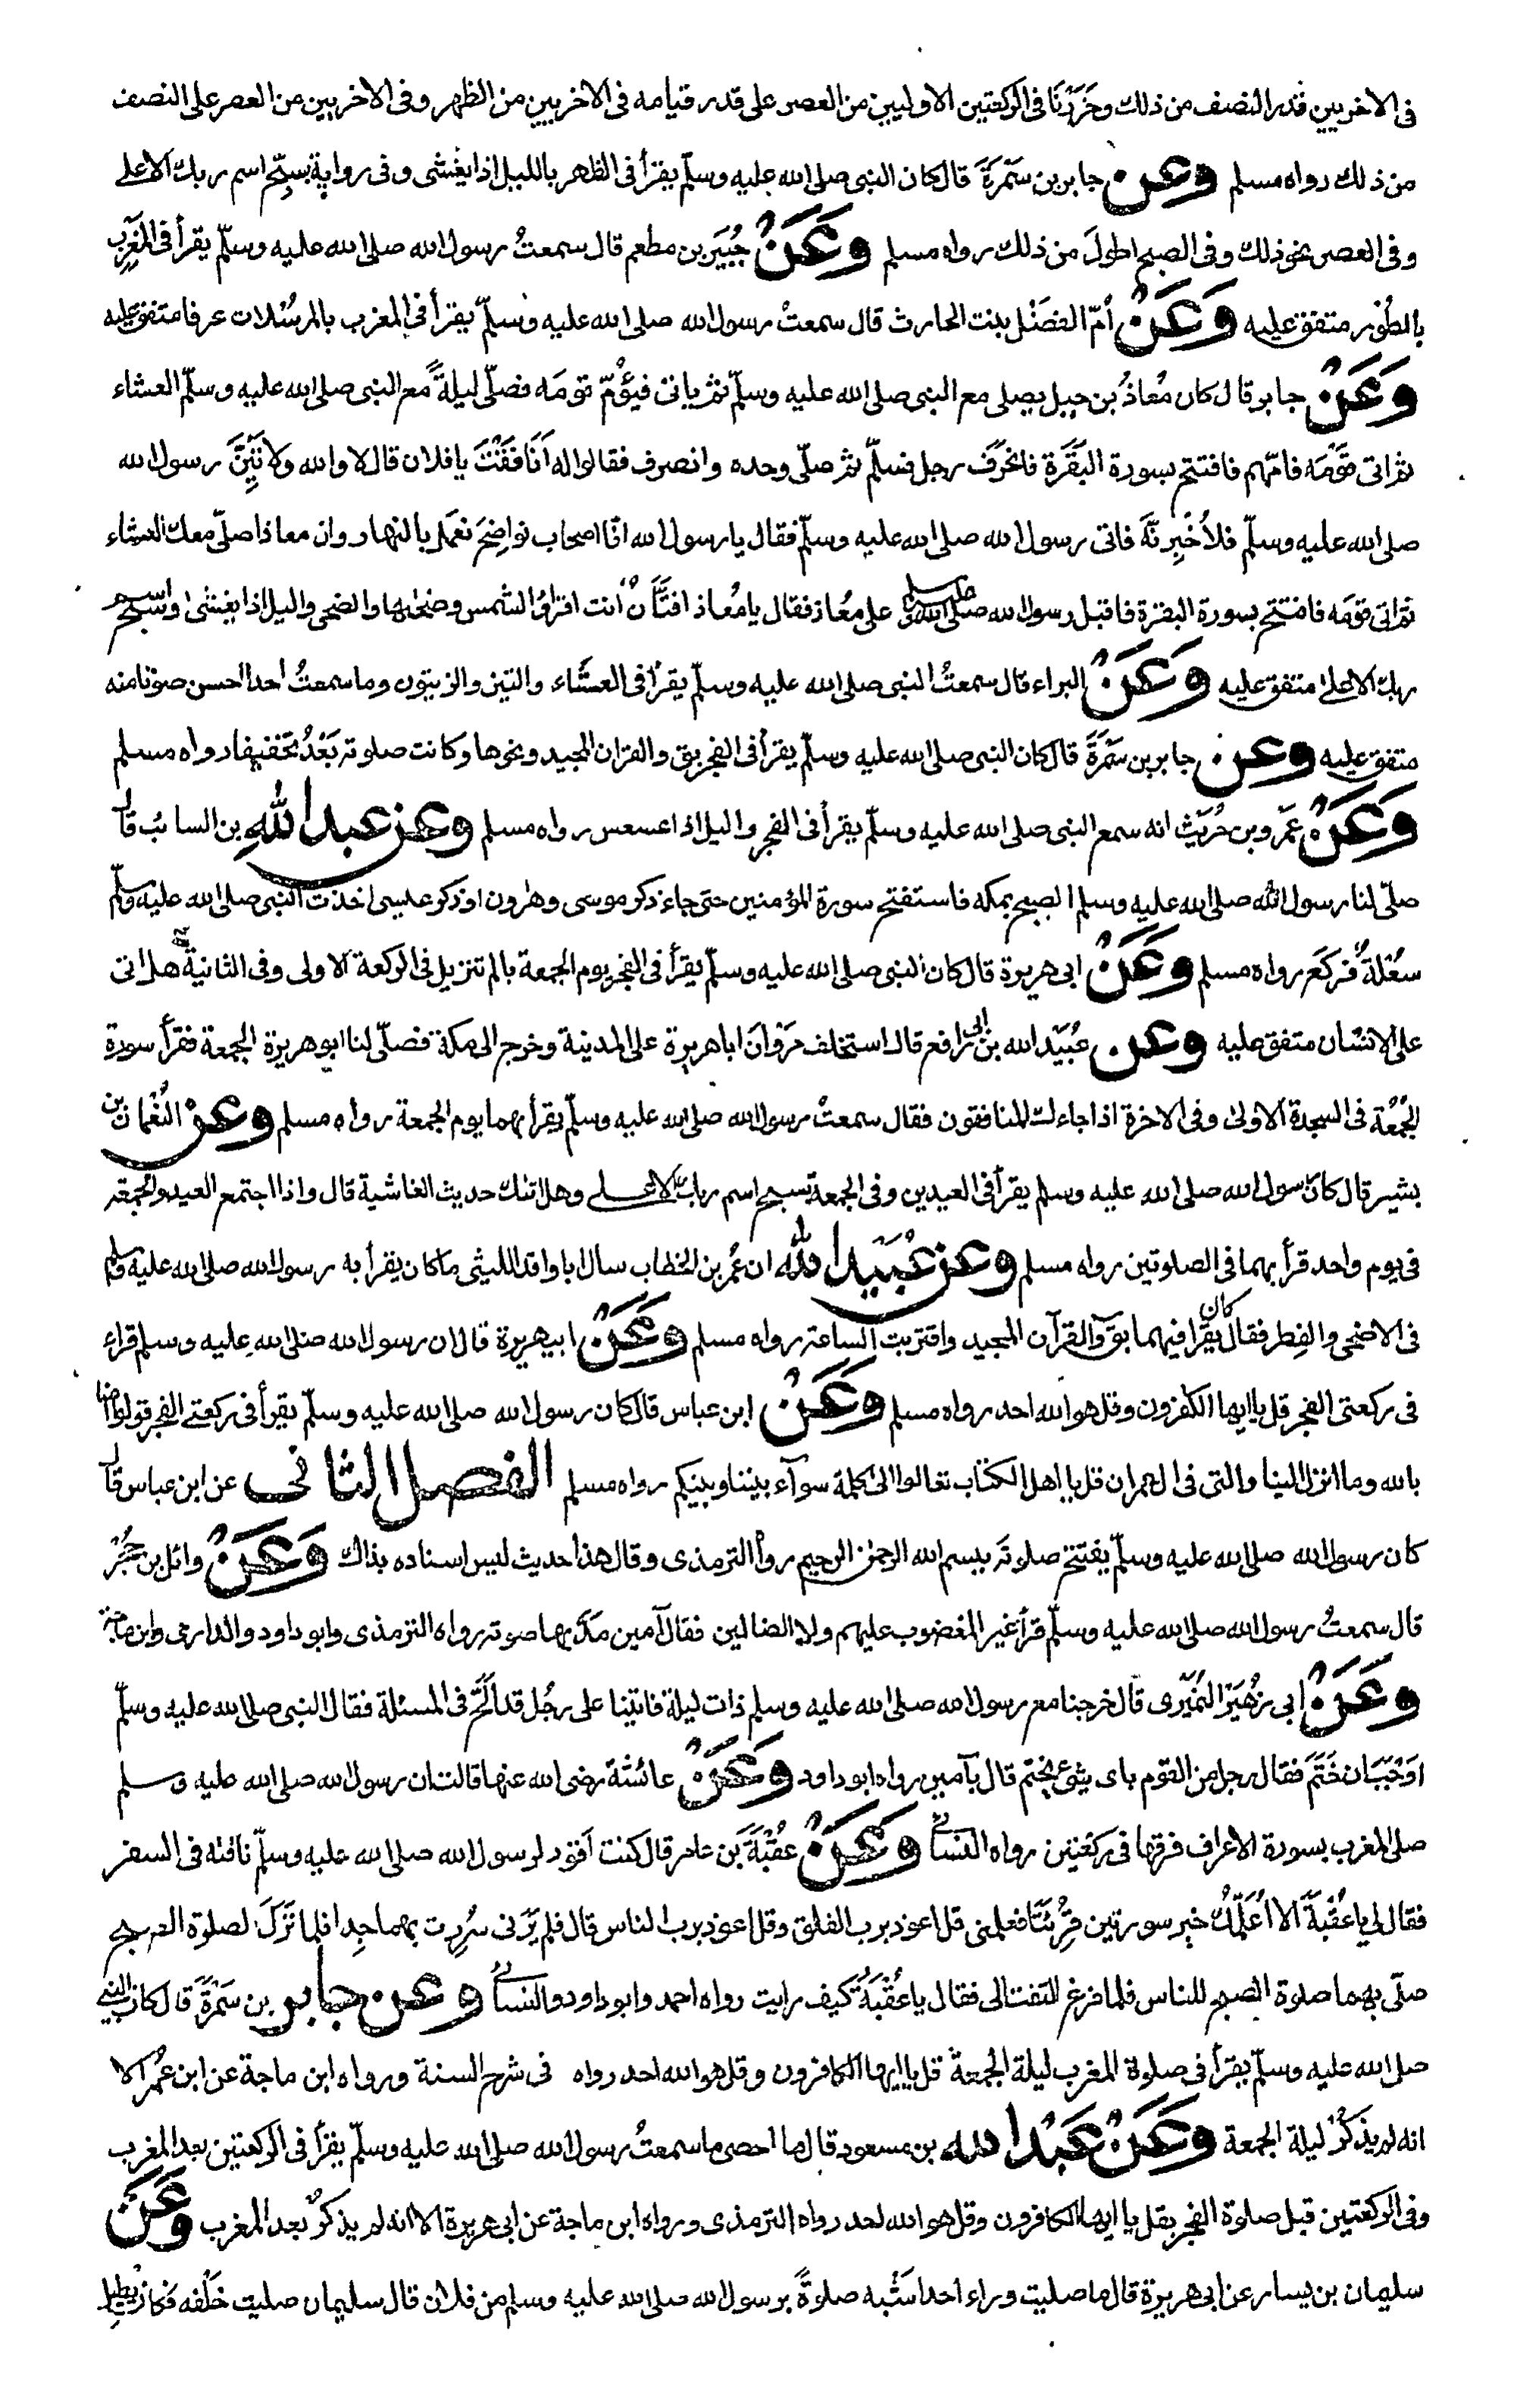 فى الاخريين قدر النصف من ذلك وحَزَرْنَا فى الركعتين الاوليين من العصر على قدر قيامه فى الاخريين من الظهر وفى الاخريين من العصر على النصف
من ذلك رواه مسلم وعن جابر بن سَمُرَةَ قال كان النبى صلى الله عليه وسلّم يقرأ فى الظهر بالليل اذا يغشى وفى رواية بسبّح اسم ربك الاعلى
وفى العصر نحو ذلك وفى الصبح اطولَ من ذلك رواه مسلم وَعَنْ جُبَيرِ بن مطعم قال سمعتُ رسول الله صلى الله عليه وسلّم يقرأ فى المَغرِب
بالطُوْر متفق عليه وَعَنْ اُمّ الفَضْل بنت الحارث قال سمعتْ رسول الله صلى الله عليه وسلّم يقرأ فى المغرب بالمرسُلات عرفا متفق عليه
وَعَنْ جابر قال كان مُعاذُ بن جبل يصلى مع النبى صلى الله عليه وسلّم ثم ياتى فيؤُمّ قومَه فصلّى ليلةً مع النبى صلى الله عليه وسلّم العشاء
ثم اتى قَوْمَه فامّهم فافتتح بسورة البَقَرَة فانحَرَف رجل فسلّم ثم صلّى وحده وانصرف فقالوا له اَنَافَقْتَ يا فلان قال لا والله ولَاٰتِيَنَّ رسول الله
صلى الله عليه وسلّم فلاُخْبِرنَّهَ فاتى رسول الله صلى الله عليه وسلّم فقال يا رسول الله انّا اصحاب نواضِحَ نعمَل بالنهار وان معاذا صلّى معك العشاء
ثم اتى قومَه فافتتح بسورة البقرة فاقبل رسول الله صلى الله عليه وسلم على معُاذ فقال يا مُعاذ افتَّان اَنت اقرأ والشمس وضحٰها والضحى واليل اذا يغشى وسبّح اسم
ربك الاعلى متفق عليه وَعَنْ البراء قال سمعتُ النبى صلى الله عليه وسلّم يقرأ فى العشَاء والتين والزيتون وما سمعتُ احدا احسن صوتا منه
متفق عليه وعن جابر بن سَمُرَةَ قال كان النبى صلى الله عليه وسلّم يقرأ فى الفجر بق والقران المجيد ونحوها وكانت صلوته بَعْدُ تخفيفا رواه مسلم
وَعَنْ عَمرِو بن حُرَيْث انه سمع النبى صلى الله عليه وسلّم يقرأ فى الفجر واليل اذا عسعس رواه مسلم وعن عبد اللهِ بن السائب قال
صلّى لنا رسول الله صلى الله عليه وسلم الصبح بمكه فاستفتح سورة المؤمنين حتى جاء ذكر موسى وهٰرون او ذكر عيسى اخذت النبى صلى الله عليه وسلّم
سعُلةٌ فركَع رواه مسلم وَعَنْ ابى هريرة قال كان النبى صلى الله عليه وسلّم يقرأ فى الفجر يوم الجمعة بالم تنزيل فى الركعة الاولى وفى الثانية هل اتى
على الانسَان متفق عليه وعن عُبَيْد الله بن ابى رَافع قال استخلف مَرْوَانَ ابا هريرة على المدينة وخرج الى مكة فصلّى لنا ابو هريرة الجمعة فقرأ سورة
الجُمُعَة فى السجدة الاولىٰ وفى الاخرة اذا جاءك المنافقون فقال سمعتُ رسول الله صلى الله عليه وسلّم يقرأ بهما يوم الجمعة رواه مسلم وعن النُعْمان بن
بشير قال كان رسول الله صلى الله عليه وسلم يقرأ فى العيدين وفى الجمعة بسبح اسم ربك الاعلى وهل اتٰك حديث الغاشية قال واذا اجتمع العيد والجمعة
فى يوم واحد قرأ بهما فى الصلوتين رواه مسلم وعن عُبَيْد الله ان عُمَر بن الخطاب سال ابا واقد الليثى ما كان يقرأ به رسول الله صلى الله عليه وسلم
فى الاضحى والفِطر فقال كان يقرأ فيهما بق والقرآن المجيد واقتربت الساعة رواه مسلم وَعَنْ ابيهريرة قال ان رسول الله صلى الله عليه وسلم قراء
فى ركعتى الفجر قل يا ايها الكٰفرون وقل هو الله احد رواه مسلم وَعَنْ ابن عباس قال كان رسول الله صلى الله عليه وسلّم يقرأ فى ركعتى الفجر قولوا اٰمنا
بالله وما انزل الينا والتى فى ال عمران قل يا اهل الكتاب تعالوا الى كلمة سوآء بيننا وبينكم رواه مسلم الفصل الثانى عن ابن عباس قال
كان رسول الله صلى الله عليه وسلّم يفتتح صلوتَه ببسم الله الرحمٰن الرحيم رواه الترمذى وقال هذا حديث ليس اسناده بذاك وَعَنْ وائل بن حُجْر
قال سمعتُ رسول الله صلى الله عليه وسلّم قرأ غير المغضوب عليهم ولا الضالين فقال آمين مدَّ بها صوته رواه الترمذى وابو داود والدارمى وابن ماجة
وَعَنْ ابى زُهَيْر النُمَيْرى قال خرجنا مع رسول الله صلى الله عليه وسلم ذات ليلة فاتينا على رجُل قد اَلَحَّ فى المسئلة فقال النبى صلى الله عليه وسلّم
اوْجَبَ ان خَتَمَ فقال رجل من القوم باى شئ يختم قال بآمين رواه ابو داود وَعَنْ عائشة رضى الله عنها قالت ان رسول الله صلى الله عليه وسلم
صلى المغرب بسورة الاعراف فرقها فى ركعتين رواه النسائى وَعَنْ عقُبْةَ بن عامر قال كنت اَقود لرسول الله صلى الله عليه وسلّم ناقته فى السفر
فقال لى يا عُقْبَةُ الا اُعَلِّمُك خير سورتين قُرِئَتَا فعلمنى قل اعوذ برب الفلق وقل اعوذ برب الناس قال فلم يَرَنى سُرِرت بهما جِدا فلما نَزَلَ لصلوة الصبح
صلّى بهما صلوة الصبح للناس فلما فرغ التفت الى فقال يا عُقْبَةُ كيف رايت رواه احمد وابو داود والنسائى وعن جابر بن سَمُرَةَ قال كان النبى
صلى الله عليه وسلّم يقرأ فى صلوة المغرب ليلة الجمعةَ قل يا ايها الكافرون وقل هو الله احد رواه فى شرح السنة ورواه ابن ماجة عن ابن عُمر الا
انه لم يذكرْ ليلة الجمعة وَعَنْ عَبْد الله بن مسعود قال ما احصى ما سمعتُ رسول الله صلى الله عليه وسلّم يقرأ فى الركعتين بعد المغرب
وفى الركعتين قبل صلوة الفجر بقل يا ايها الكافرون وقل هو الله احد رواه الترمذى ورواه ابن ماجة عن ابى هريرة الا انه لم يذكر بعد المغرب وَعَنْ
سليمان بن يسار عن ابى هريرة قال ما صليت وراء احد اَشْبه صلوةً برسول الله صلى الله عليه وسلم من فلان قال سليمان صليت خَلْفه فكان يطيل